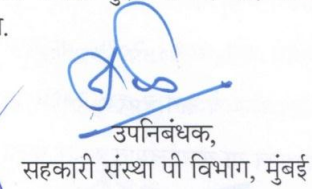 .
उपनिबंधक,
सहकारी संस्था पी विभाग, मुंबई